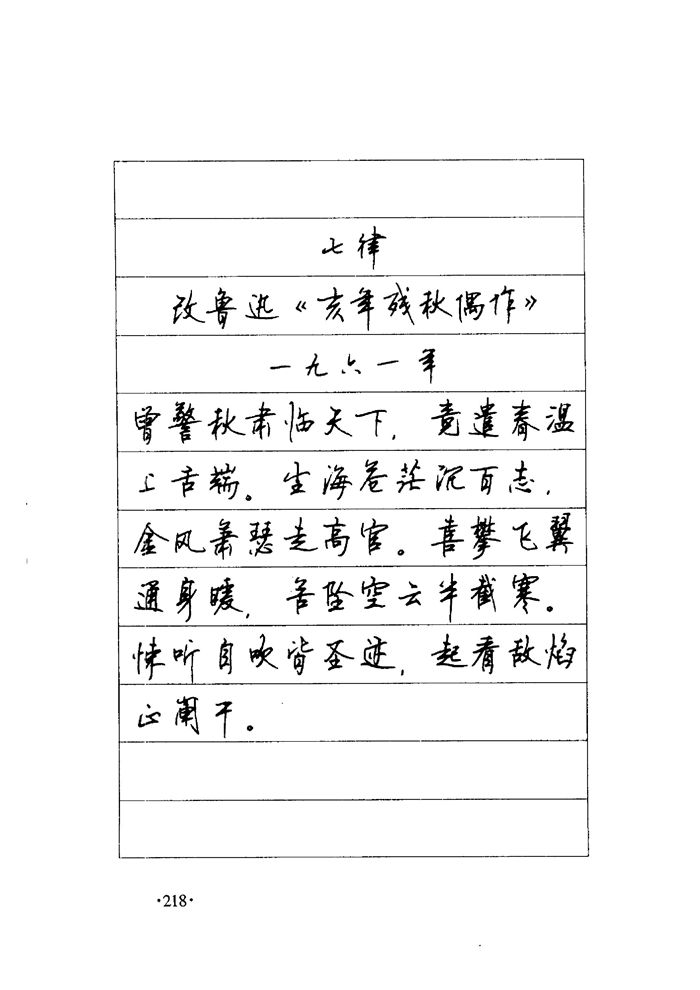 七律
改鲁迅《亥年残秋偶作》
一九六一年
曾警秋肃临天下，竟遣春温
上舌端。尘海苍茫沉百志，
金风萧瑟走高官。喜攀飞翼
通身暖，苦坠空云半截寒。
悚听自吹皆圣迹，起看敌焰
正阑干。
·218·